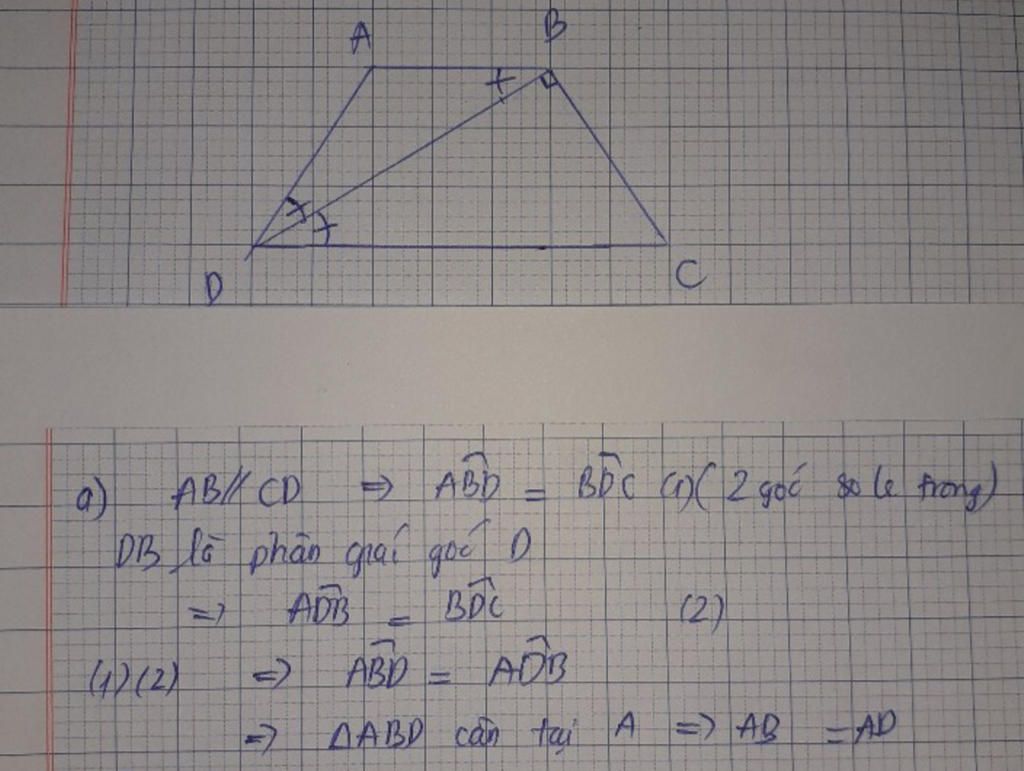 A B
D C
a) AB // CD => ABD̂ = BDĈ (1) ( 2 góc so le trong)
DB là phân giác góc D
=> ADB̂ = BDĈ (2)
(1)(2) => ABD̂ = ADB̂
=> ΔABD cân tại A => AB = AD